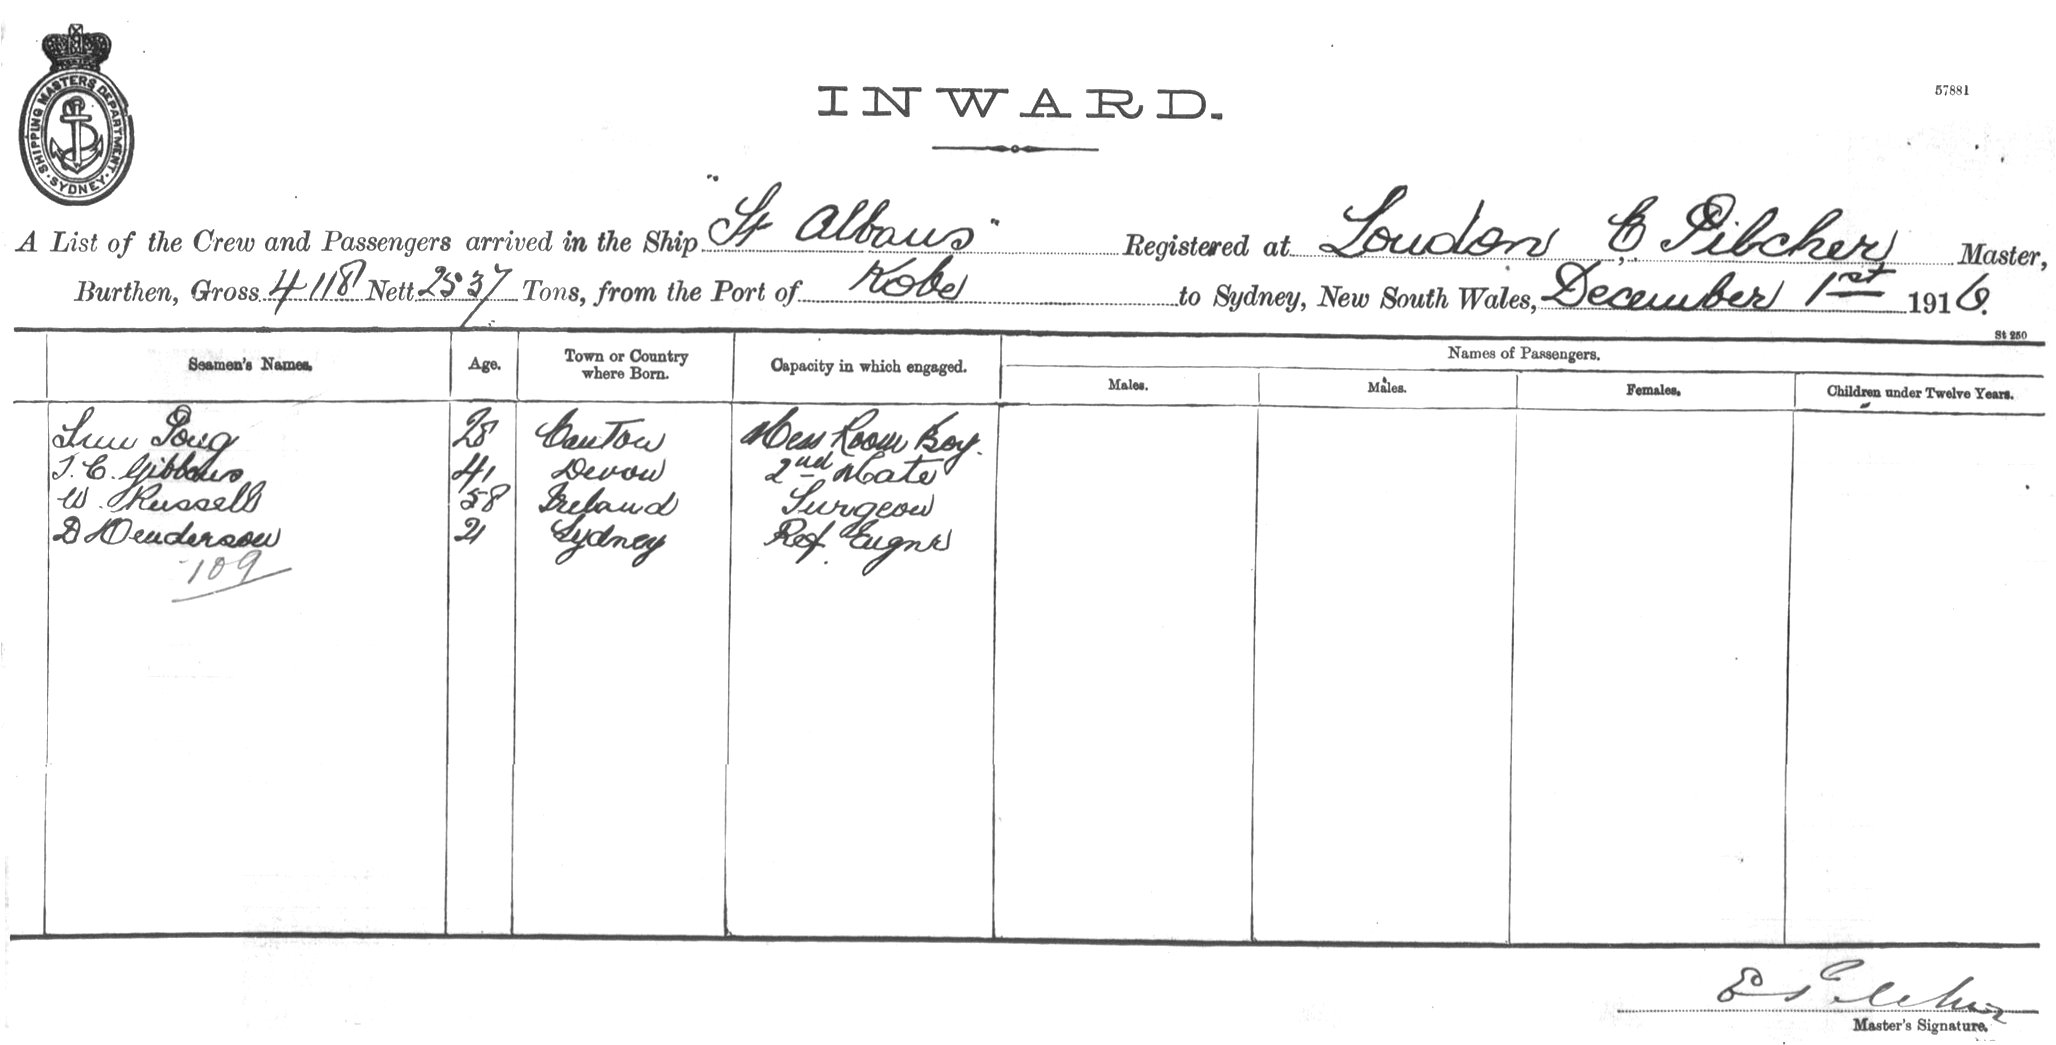 SHIPPING MASTERS DEPARTMENT. SYDNEY.
INWARD.
57881
A List of the Crew and Passengers arrived in the Ship "St Albans" Registered at London E Pilcher Master,
Burthen, Gross 4118 Nett 2537 Tons, from the Port of Kobe to Sydney, New South Wales, December 1st 1916.
St 250
Seamen's Names. Age. Town or Country where Born. Capacity in which engaged. Names of Passengers.
Males. Males. Females. Children under Twelve Years.
Pong 28 Canton Mess Room Boy.
T. C. Gibbons 41 Devon 2nd Mate
W. Russell 58 Ireland Surgeon
D Henderson 21 Sydney Ref. Engnr
109
E Pilcher
Master's Signature.